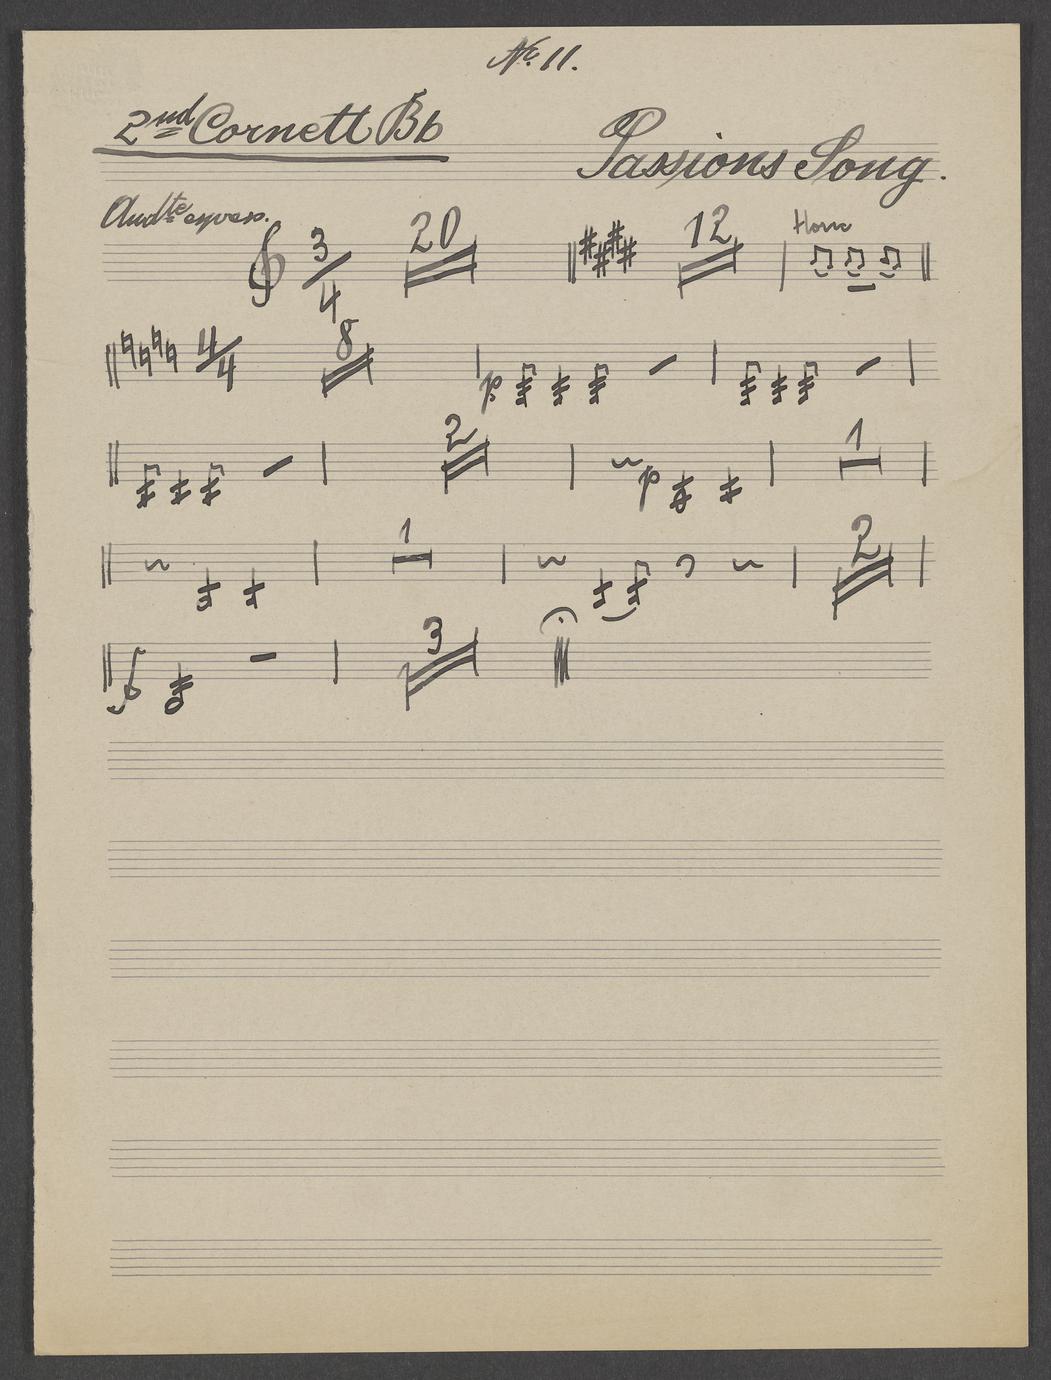 No. 11.
2nd Cornett Bb
Passions Song.
Andte espress.
3/4 20 12 Horn
4/4 8
p
2 p 1
1 2
3